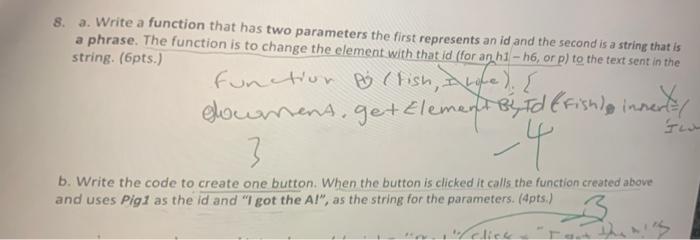 8. a. Write a function that has two parameters the first represents an id and the second is a string that is
a phrase. The function is to change the element with that id (for an h1 – h6, or p) to the text sent in the
string. (6pts.)
function (fish, {
document.getElementById(fish).inner
}
-4
b. Write the code to create one button. When the button is clicked it calls the function created above
and uses Pig1 as the id and "I got the A!", as the string for the parameters. (4pts.)
3
click = "I got the